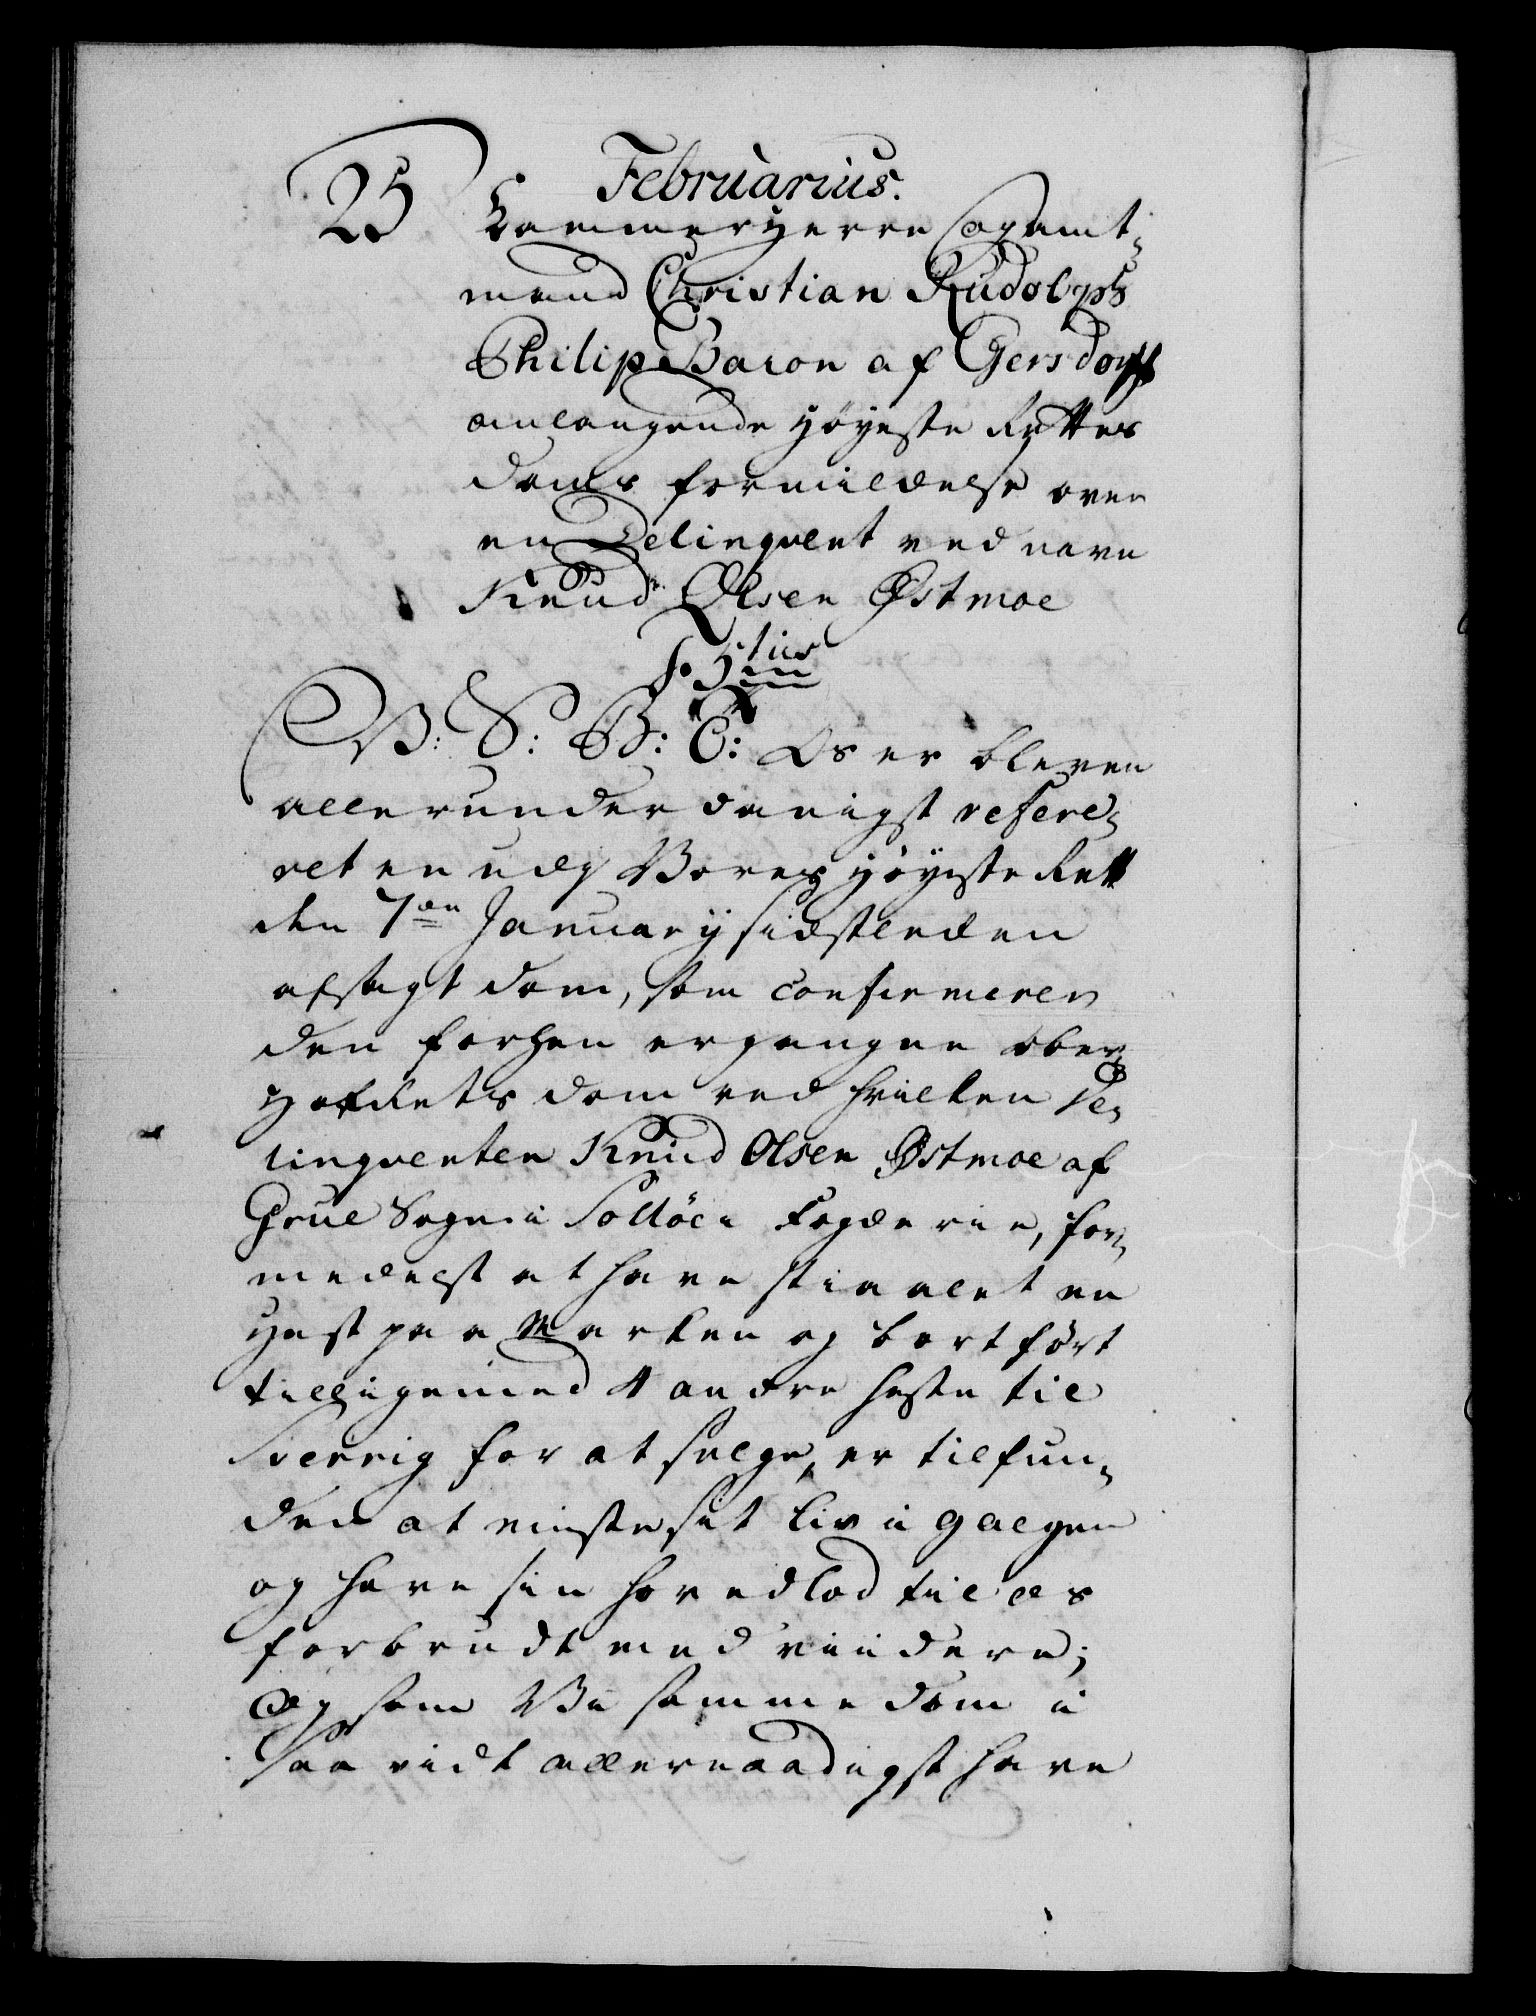 Februarius.
25 Kammerherre Og Amt-
mand Christian Rudolph
Philip Baron af Gersdorff
anlangende Høyeste Rettes
doms formildelse over
en Delinqvent ved navn
Knud Olsen Østmoe
F. 5tus
V: S: G: T: Os er bleven
allerunderdanigst refere-
ret en udj Vores Høyeste Rett
den 7de January sidstleden
afsagt dom, som confirmerer
den forhen ergangne Ober
Hofrets dom ved hvilken De-
linqventen Knud Olsen Østmoe af
Grue Sogn i Soelöer Fogderie, for-
medelst at have stiaalet en
Hest paa Marken og bortført
tilligemed 4 andre heste til
Sverrig for at selge, er tilfun-
den at miste sit liv i galgen
og have sin hovedlod til os
forbrudt med viidere;
Og som Vi samme dom i
saa vidt allernaadigst have